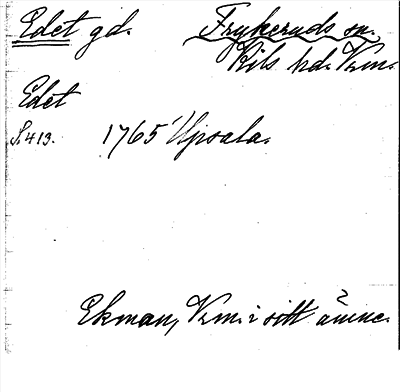 Edet gd. Frykeruds sn.
Kils hd. Vrm.
Edet
S. 413. 1765 Upsala.
Ekman, Vrm. i sitt ämne.